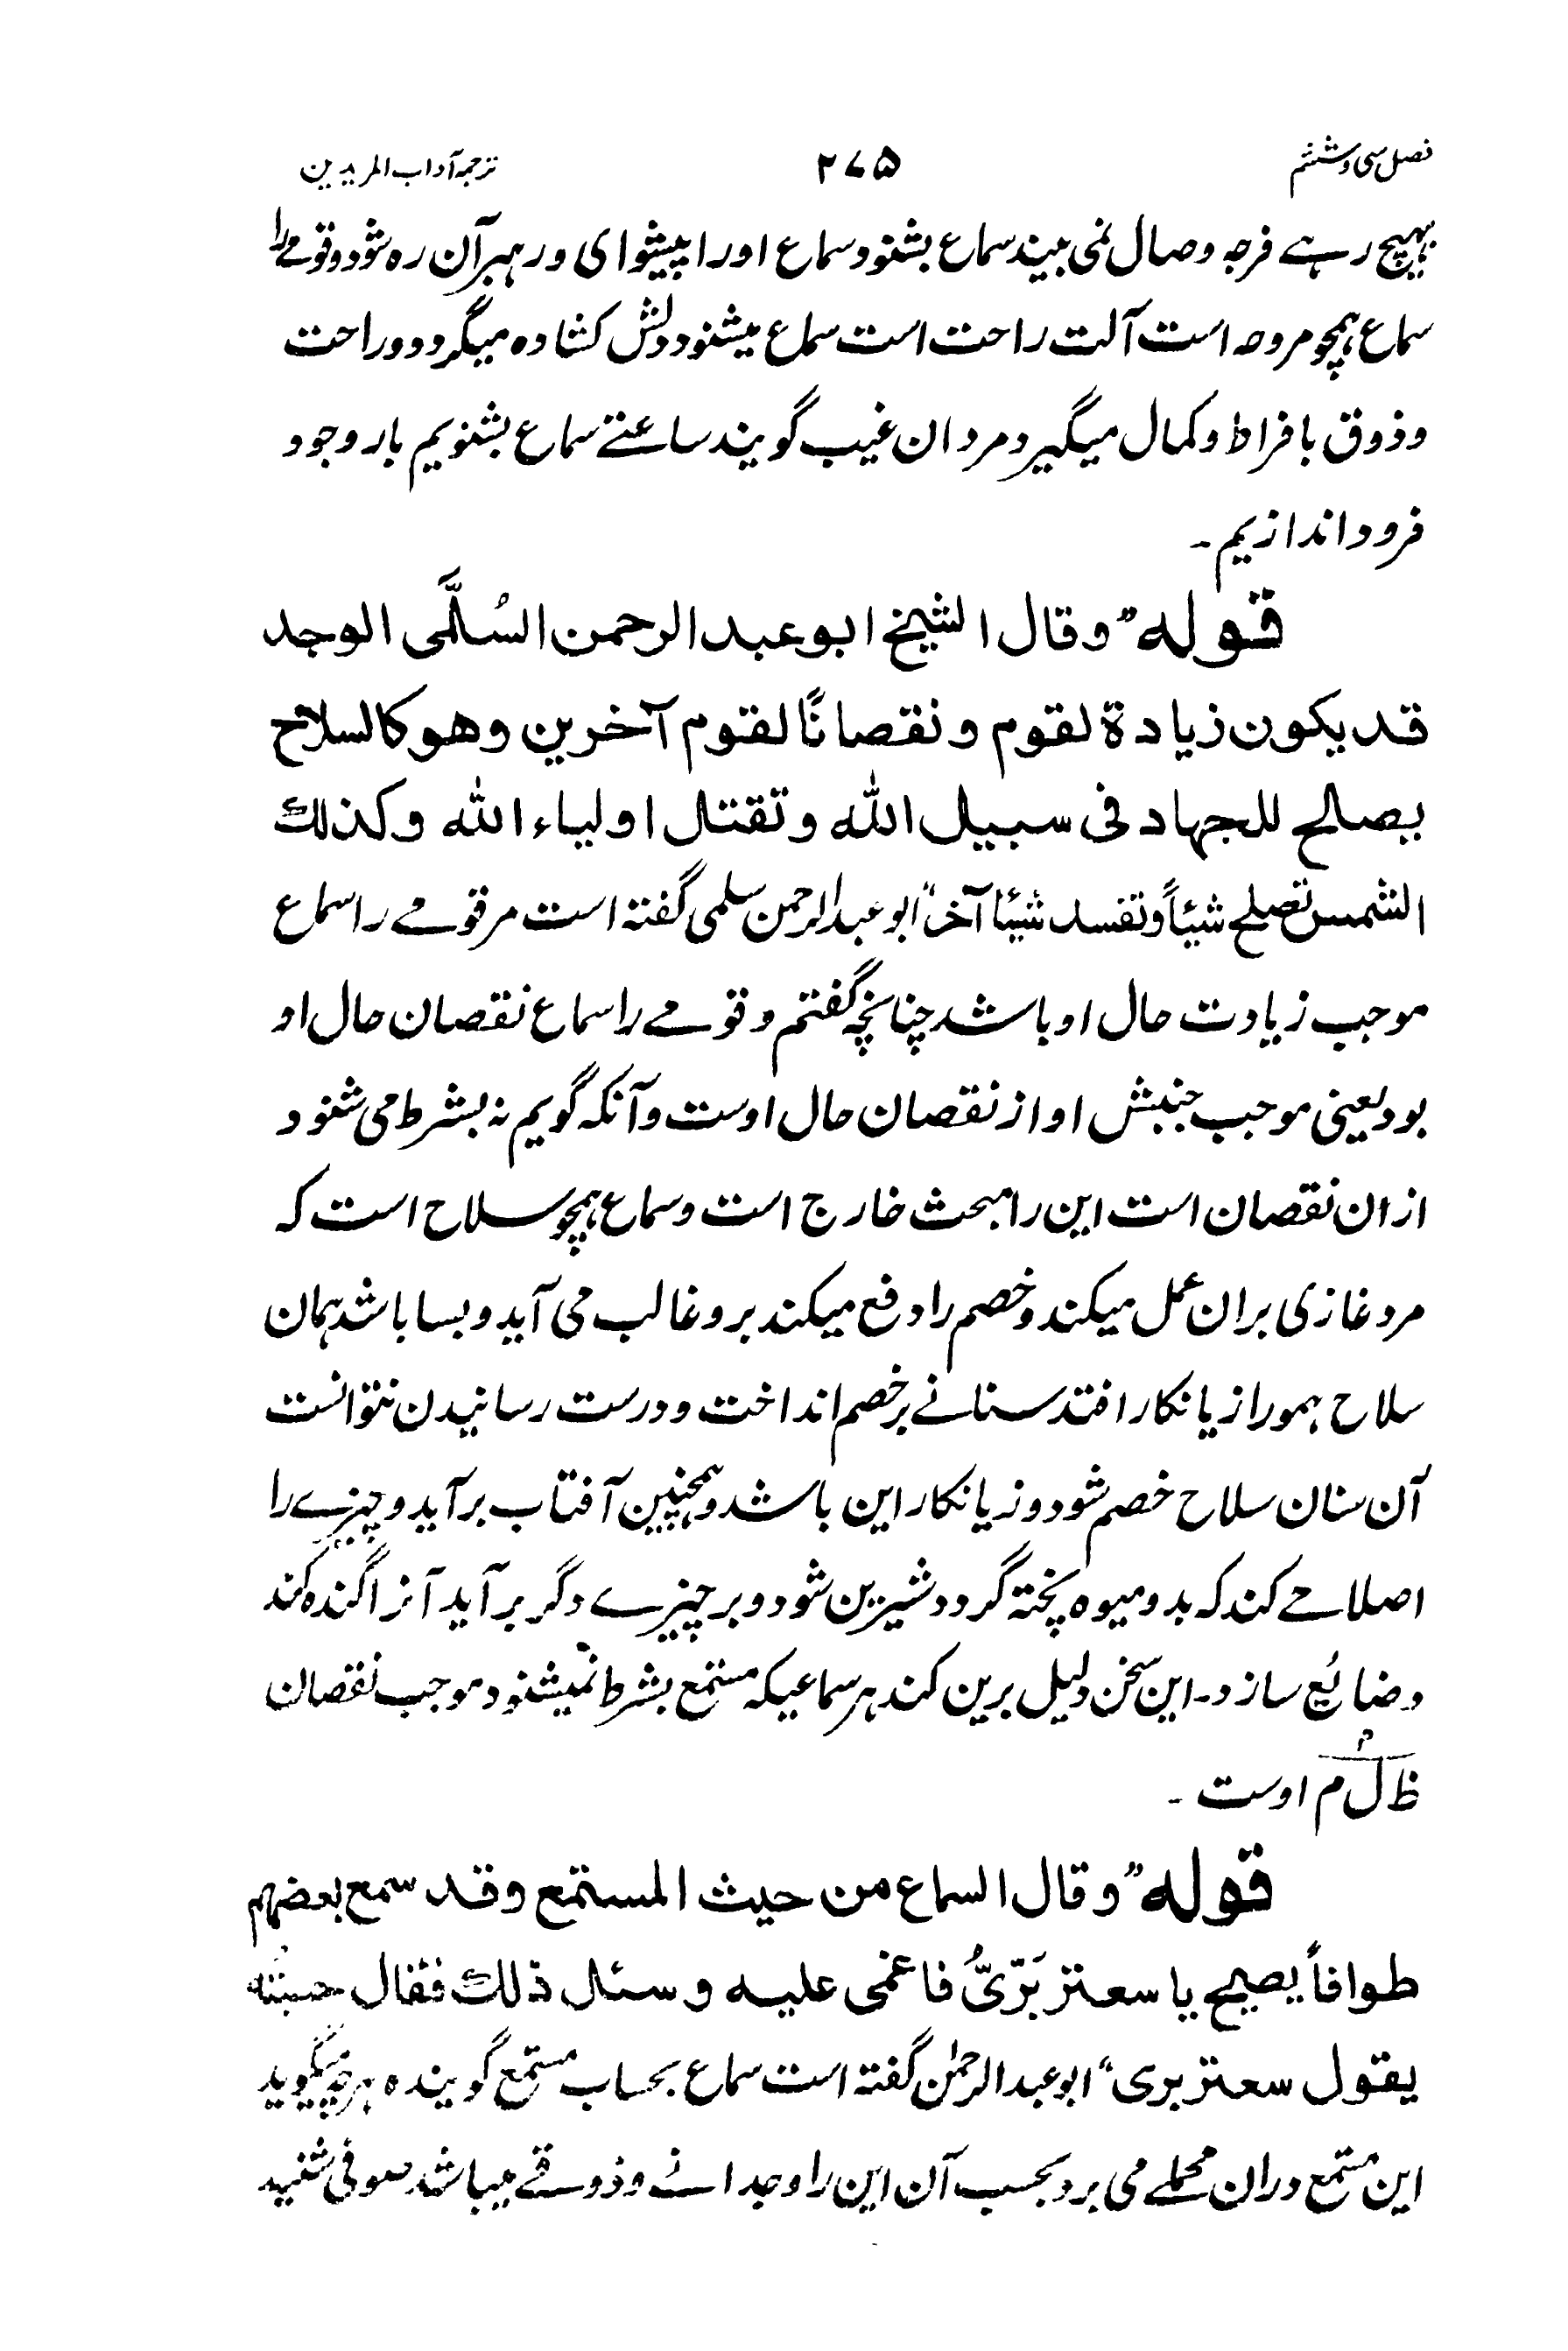 فصل سی و ششم
۲۷۵
ترجمه آداب المریدین
بہیچ رہے فرجہ وصال نمی بیند سماع بشنود سماع او را پیشوای و رہبر آن رہ شود و قومے را
سماع ہمچو مروحہ است آلت راحت است سماع میشنود دلش کشادہ میگردد و راحت
و ذوق بافراط و کمال میگیرد مردان غیب گویند ساعتے سماع بشنویم بار وجود
فرود اندازیم ۔
قوله ” وقال الشیخ ابو عبد الرحمن السُلَّمی الوجد
قد یکون زیادة لقوم و نقصانًا لقوم آخرین وهو کالسلاح
یصالح للجهاد فی سبیل الله و تقتل اولیاء الله وکذلك
الشمس تصلح شیئاً وتفسد شیئا آخر“ ابو عبدالرحمن سلمی گفتہ است مر قومے را سماع
موجب زیادت حال او باشد چنانچہ گفتم و قومے را سماع نقصان حال او
بود یعنی موجب جنبش او از نقصان حال اوست و آنکہ گویم نہ بشرط می شنود
ازان نقصان است این را مبحث خارج است و سماع ہمچو سلاح است کہ
مرد غازی بران عمل میکند و خصم را دفع میکند برو غالب می آید و بسا باشد ہمان
سلاح ہمو را زیانکار افتد سنانے بر خصم انداخت و درست رسانیدن نتوانست
آن سنان سلاح خصم شود و زیانکار این باشد و ہمچنین آفتاب برآید و چیزے را
اصلاحے کند کہ بدو میوہ پختہ گردد شیرین شود و بر چیزے دگر برآید آنرا گندہ کند
و ضائع سازد۔ این سخن دلیل برین کند ہر سماعیکہ مستمع بشرط نمیشنود موجب نقصان
ظ ل م اوست ۔
قوله ” وقال السماع من حیث المستمع وقد سمع بعضهم
طوافاً یصیح یا سعتر بَرّیُّ فاغمی علیه و سئل ذلك فقال حسبته
یقول سعتر بری“ ابو عبدالرحمٰن گفتہ است سماع بحساب مستمع گویندہ ہرچہ میگوید
این مستمع دران محملے می برد بحسب آن این را وجدانے و ذوقے میباشد صوفی شنید